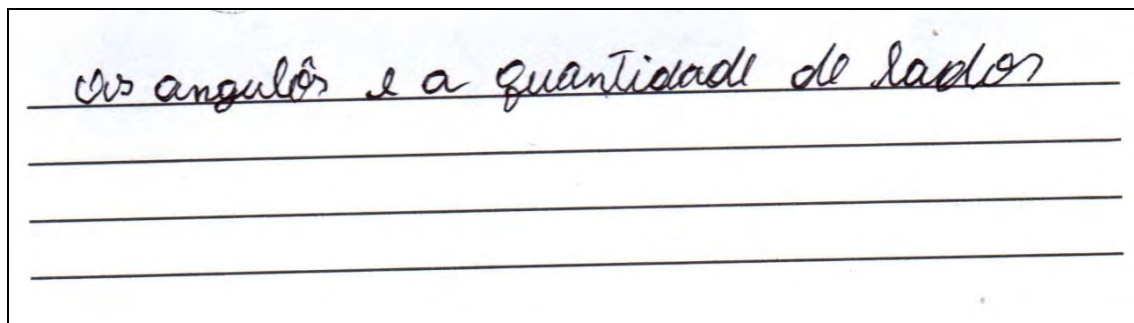 os angulôs e a quantidade de lados